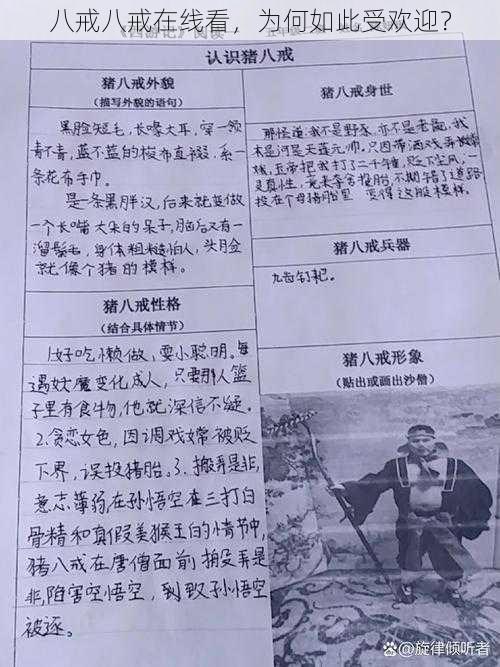 八戒八戒在线看，为何如此受欢迎？
认识猪八戒
猪八戒外貌
（描写外貌的语句）
黑脸短毛，长喙大耳，穿一领
青不青，蓝不蓝的梭布直裰，系一
条花布手巾。
是一条黑胖汉，后来就变做
一个长嘴大朵的呆子，脑后又有一
溜鬃毛，身体粗糙怕人，头脸
就像个猪的模样。
猪八戒性格
（结合具体情节）
1.好吃懒做，耍小聪明。每
遇妖魔变化成人，只要那人篮
子里有食物，他就深信不疑。
2.贪恋女色，因调戏嫦被贬
下界，误投猪胎。3.搬弄是非，
意志薄弱，在孙悟空在三打白
骨精和真假美猴王的情节中，
猪八戒在唐僧面前搬弄是
非，陷害空悟空，到致孙悟空
被逐。
猪八戒身世
那怪道：我不是野豕，亦不是老彘，我
本是河是天蓬元帅，只因带酒戏弄嫦
娥，玉帝把我打了二千锤，贬下尘凡，一
灵真性，竟来夺舍投胎，不期错了道路
投在个母猪胎里 变得这般模样。
猪八戒兵器
九齿钉耙。
猪八戒形象
（贴出或画出沙僧）
@旋律倾听者